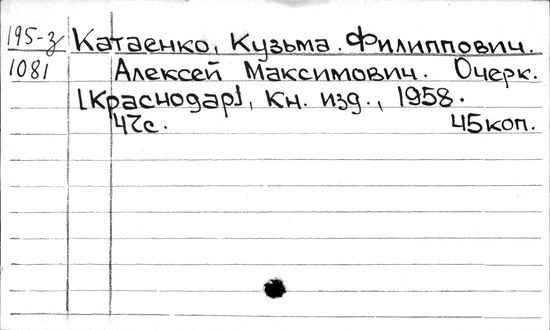 195-з
1081
Катаенко, Кузьма Филиппович.
Алексей Максимович. Очерк.
[Краснодар], Кн. изд., 1958.
47с. 45коп.